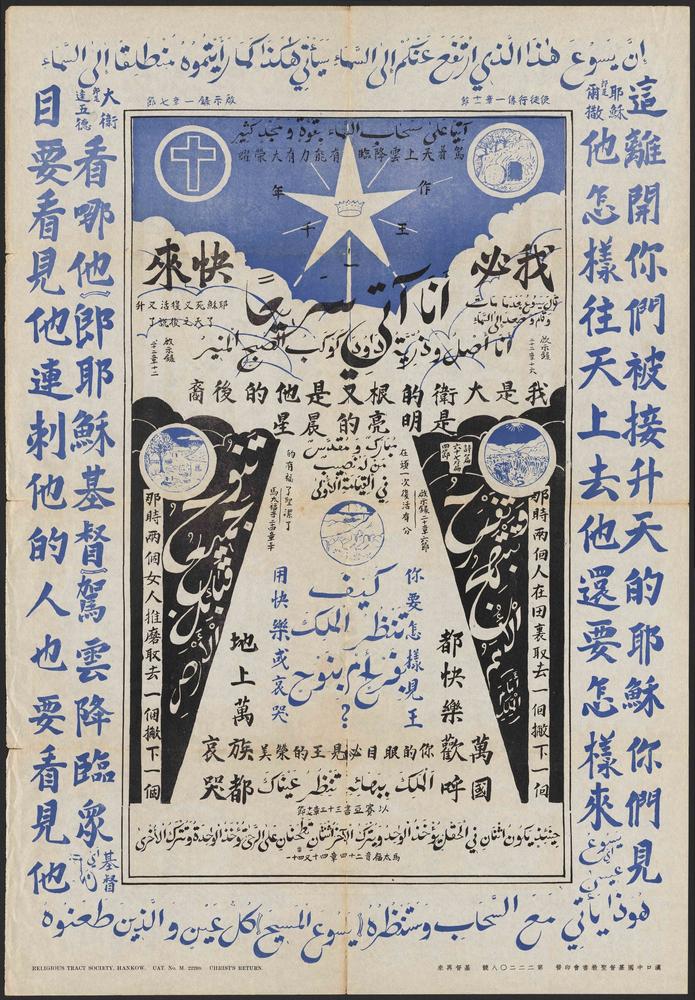 إن يسوع هذا الذي ارتفع عنكم إلى السماء سيأتي هكذا كما رأيتموه منطلقا إلى السماء
使徒行傳一章十一節
啟示錄一章七節
這離開你們被接升天的耶穌你們見
耶穌
爾撒
他怎樣往天上去他還要怎樣來
大衛
達五德
看哪他(卽耶穌基督)駕雲降臨眾
目要看見他連刺他的人也要看見他
آتيا على سحاب السماء بقوة و مجد كثير
駕着天上雲降臨有能力有大榮耀
作王
千年
我必快來
أنا آتي سريعا
耶穌死又復活又升
أنا أصل و ذرية داود كوكب الصبح المنير
我是大衛的根又是他的後裔
是明亮的晨星
مبارك و مقدس
من له نصيب
في القيامة الأولى
在頭一次復活有分
啟示錄二十章六節
的有福了聖潔了
詩篇
那時兩個人在田裏取去一個撇下一個
那時兩個女人推磨取去一個撇下一個
تنوح جميع قبائل الأرض
كيف
تنظر الملك
بفرح أم بنوح
؟
你要怎樣見王
用快樂或哀哭
萬國
都快樂歡呼
地上萬族都
哀哭
你的眼目必見王的榮美
الملك ببهائه تنظر عيناك
以賽亞書三十三章十七節
حينئذ يكون اثنان في الحقل يؤخذ الواحد ويترك الآخر اثنتان تطحنان على الرحى تؤخذ الواحدة وتترك الأخرى
馬太福音二十四章四十又四十一
يسوع
عيسى
基督
هوذا يأتي مع السحاب وستنظره (يسوع المسيح) كل عين و الذين طعنوه
RELIGIOUS TRACT SOCIETY, HANKOW. CAT. No. M. 22208. CHRIST'S RETURN.
漢口中國基督聖教書會印發 第二二二〇八號 基督再來